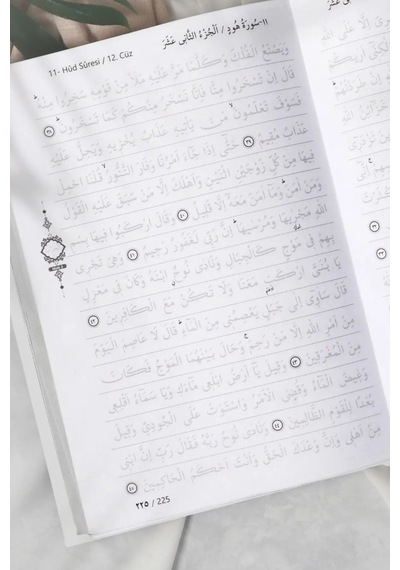 11- Hûd Sûresi / 12. Cüz
١١-سُورَةُ هُودٍ / اَلْجُزْءُ الثَّانِى عَشَرَ
وَيَصْنَعُ الْفُلْكَ وَكُلَّمَا مَرَّ عَلَيْهِ مَلَأٌ مِنْ قَوْمِهِ سَخِرُوا مِنْهُ
قَالَ اِنْ تَسْخَرُوا مِنَّا فَاِنَّا نَسْخَرُ مِنْكُمْ كَمَا تَسْخَرُونَ ٣٨
فَسَوْفَ تَعْلَمُونَ مَنْ يَأْتِيهِ عَذَابٌ يُخْزِيهِ وَيَحِلُّ عَلَيْهِ
عَذَابٌ مُقِيمٌ ٣٩ حَتّٰى اِذَا جَاءَ اَمْرُنَا وَفَارَ التَّنُّورُ قُلْنَا احْمِلْ
فِيهَا مِنْ كُلٍّ زَوْجَيْنِ اثْنَيْنِ وَاَهْلَكَ اِلَّا مَنْ سَبَقَ عَلَيْهِ الْقَوْلُ
وَمَنْ اٰمَنَ وَمَا اٰمَنَ مَعَهُ اِلَّا قَلِيلٌ ٤٠ وَقَالَ ارْكَبُوا فِيهَا بِسْمِ
اللّٰهِ مَجْرٰۭيهَا وَمُرْسٰيهَا اِنَّ رَبِّى لَغَفُورٌ رَحِيمٌ ٤١ وَهِىَ تَجْرِى
بِهِمْ فِى مَوْجٍ كَالْجِبَالِ وَنَادٰى نُوحٌ ابْنَهُ وَكَانَ فِى مَعْزِلٍ
يَا بُنَىَّ ارْكَبْ مَعَنَا وَلَا تَكُنْ مَعَ الْكَافِرِينَ ٤٢
قَالَ سَاٰوِى اِلٰى جَبَلٍ يَعْصِمُنِى مِنَ الْمَاءِ قَالَ لَا عَاصِمَ الْيَوْمَ
مِنْ اَمْرِ اللّٰهِ اِلَّا مَنْ رَحِمَ وَحَالَ بَيْنَهُمَا الْمَوْجُ فَكَانَ
مِنَ الْمُغْرَقِينَ ٤٣ وَقِيلَ يَا اَرْضُ ابْلَعِى مَاءَكِ وَيَا سَمَاءُ اَقْلِعِى
وَغِيضَ الْمَاءُ وَقُضِىَ الْاَمْرُ وَاسْتَوَتْ عَلَى الْجُودِىِّ وَقِيلَ
بُعْدًا لِلْقَوْمِ الظَّالِمِينَ ٤٤ وَنَادٰى نُوحٌ رَبَّهُ فَقَالَ رَبِّ اِنَّ ابْنِى
مِنْ اَهْلِى وَاِنَّ وَعْدَكَ الْحَقُّ وَاَنْتَ اَحْكَمُ الْحَاكِمِينَ ٤٥
٢٢٥ / 225